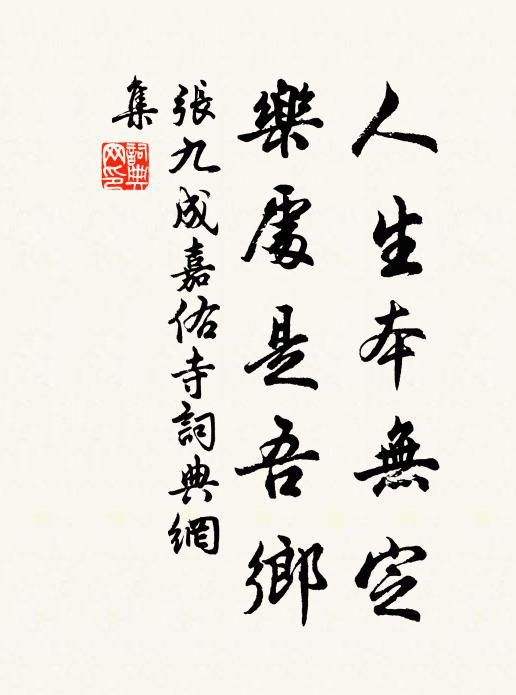 人生本無定
樂處是吾鄉
張九成嘉佑寺詞典網
集
詞典网印